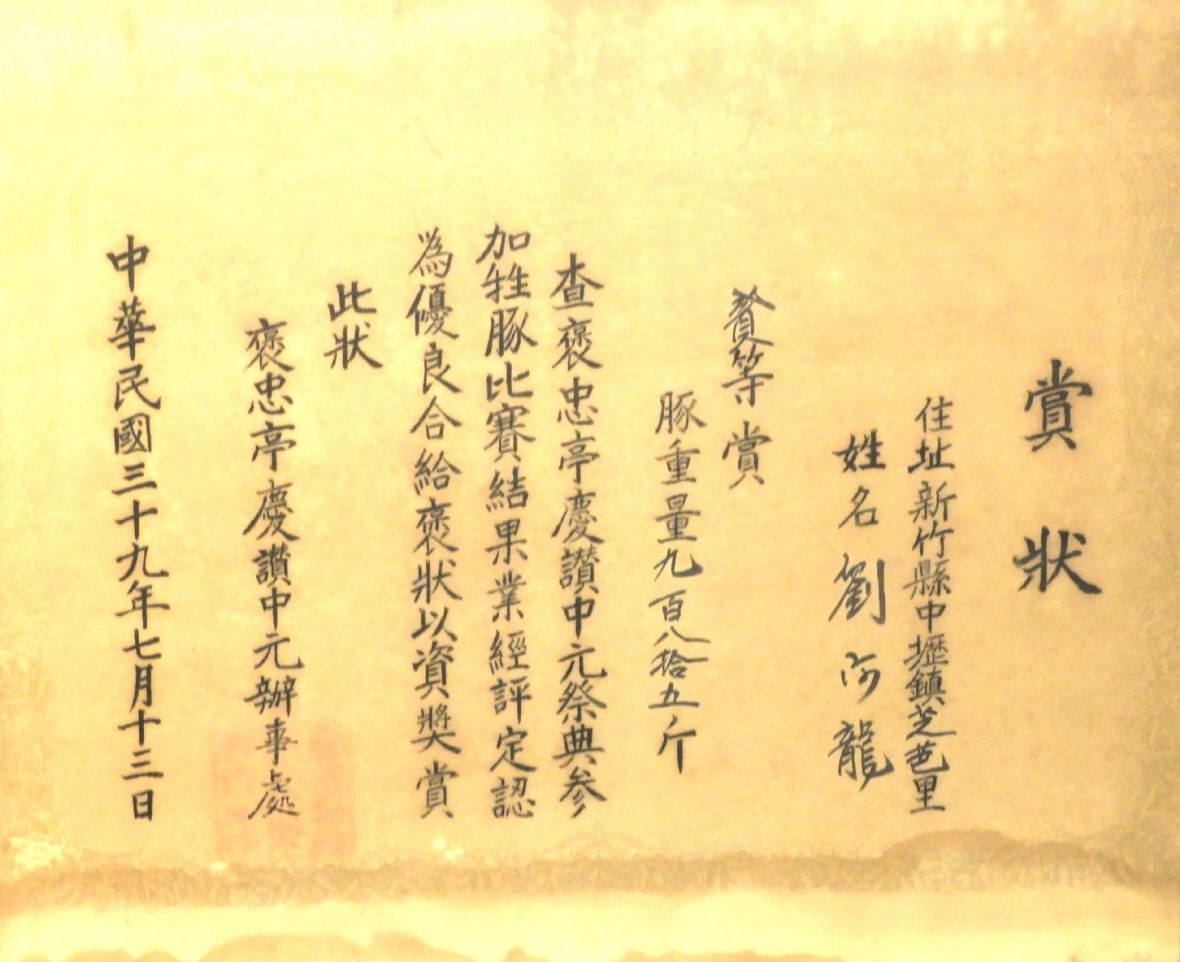 賞狀
住址新竹縣中壢鎮芝芭里
姓名劉阿龍
等賞
豚重量九百八拾五斤
查褒忠亭慶讚中元祭典参
加牲豚比賽結果業經評定認
為優良合給褒狀以資獎賞
此狀
褒忠亭慶讚中元辦事處
中華民國三十九年七月十三日